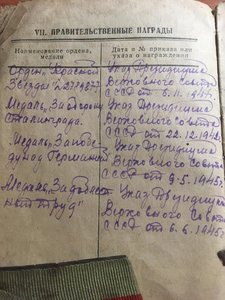 VII. ПРАВИТЕЛЬСТВЕННЫЕ НАГРАДЫ
Наименование ордена, медали
Дата и № приказа или указа о награждении
Орден Красной
Звезды
Указ Президиума
Верховного Совета
СССР от 6.11.
Медаль За оборону
Сталинграда.
Указ Президиума
Верховного Совета
СССР от 22.12.
Медаль За победу
над Германией
Указ Президиума
Верховного Совета
СССР 9.5.1945г.
Медаль За доблестный
труд"
Указ Президиума
Верховного Совета
СССР от 6.6.1945г.